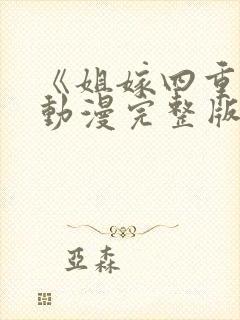 《姐嫁四重
動漫完整版
亞森